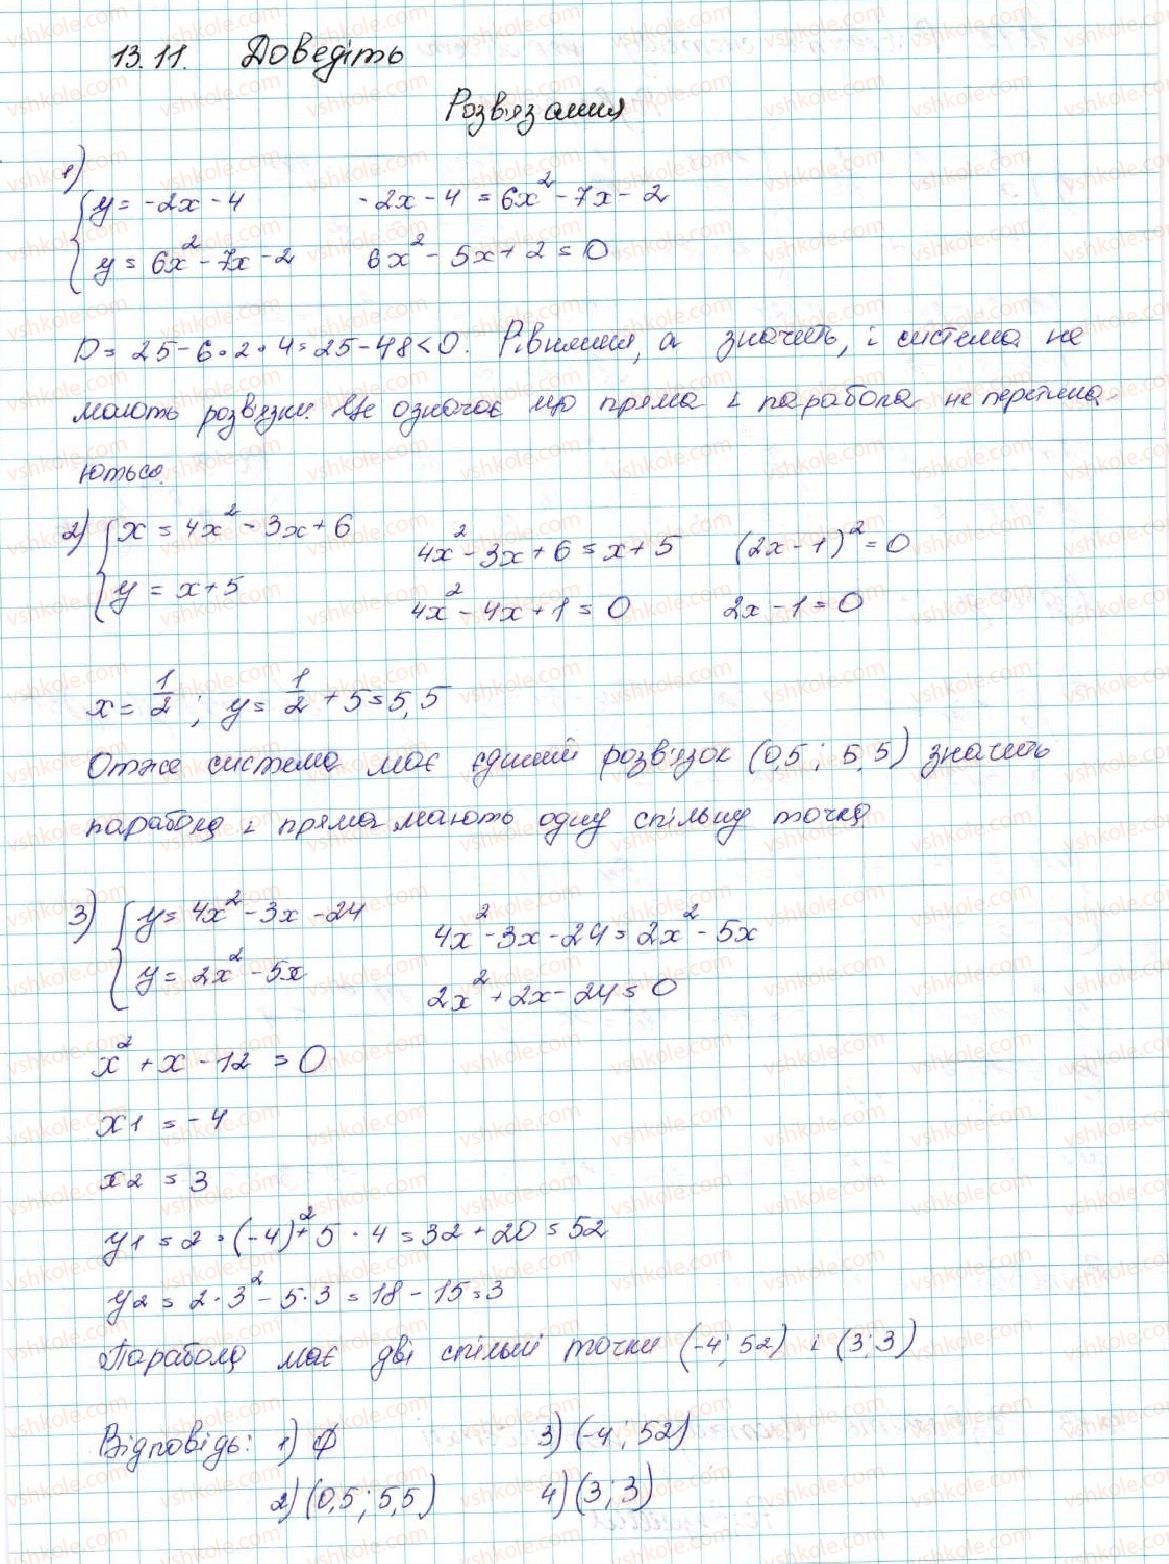 13.11. Доведіть
Розв'язання
1)
{ y = -2x - 4     -2x - 4 = 6x² - 7x - 2
y = 6x² - 7x - 2     6x² - 5x + 2 = 0
D = 25 - 6·2·4 = 25 - 48 < 0. Рівняння, а значить, і система не
мають розв'язки. Це означає що пряма і парабола не перетина-
ються.
2) { x = 4x² - 3x + 6     4x² - 3x + 6 = x + 5     (2x - 1)² = 0
y = x + 5     4x² - 4x + 1 = 0     2x - 1 = 0
x = 1/2 ; y = 1/2 + 5 = 5,5
Отже система має єдиний розв'язок (0,5 ; 5,5) значить
парабола і пряма мають одну спільну точку
3) { y = 4x² - 3x - 24     4x² - 3x - 24 = 2x² - 5x
y = 2x² - 5x     2x² + 2x - 24 = 0
x² + x - 12 = 0
x1 = -4
x2 = 3
y1 = 2·(-4)² + 5·4 = 32 + 20 = 52
y2 = 2·3² - 5·3 = 18 - 15 = 3
Парабола має дві спільні точки (-4; 52) і (3; 3)
Відповідь: 1) ∅     3) (-4; 52)
2) (0,5; 5,5)     4) (3; 3)